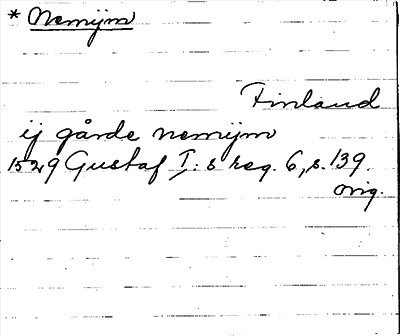 * Nemijm
Finland
ij gårde nemijm
1529 Gustaf I:s reg. 6, s. 139.
orig.